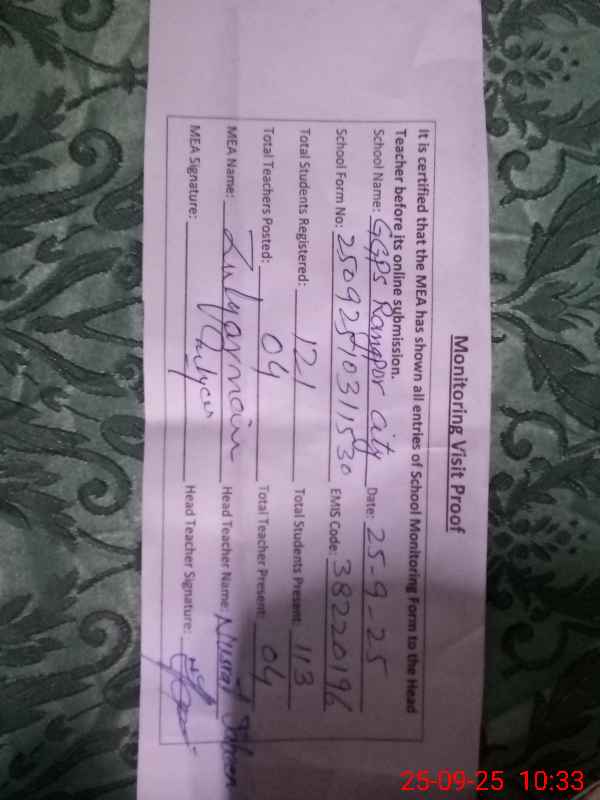 Monitoring Visit Proof
It is certified that the MEA has shown all entries of School Monitoring Form to the Head
Teacher before its online submission.
School Name: GGPS Rangpor city Date: 25-9-25
School Form No: EMIS Code: 38220196
Total Students Registered: 121 Total Students Present: 113
Total Teachers Posted: 04 Total Teacher Present: 04
MEA Name: Zulqarnain Head Teacher Name: Nusrat
MEA Signature: Head Teacher Signature:
25-09-25 10:33